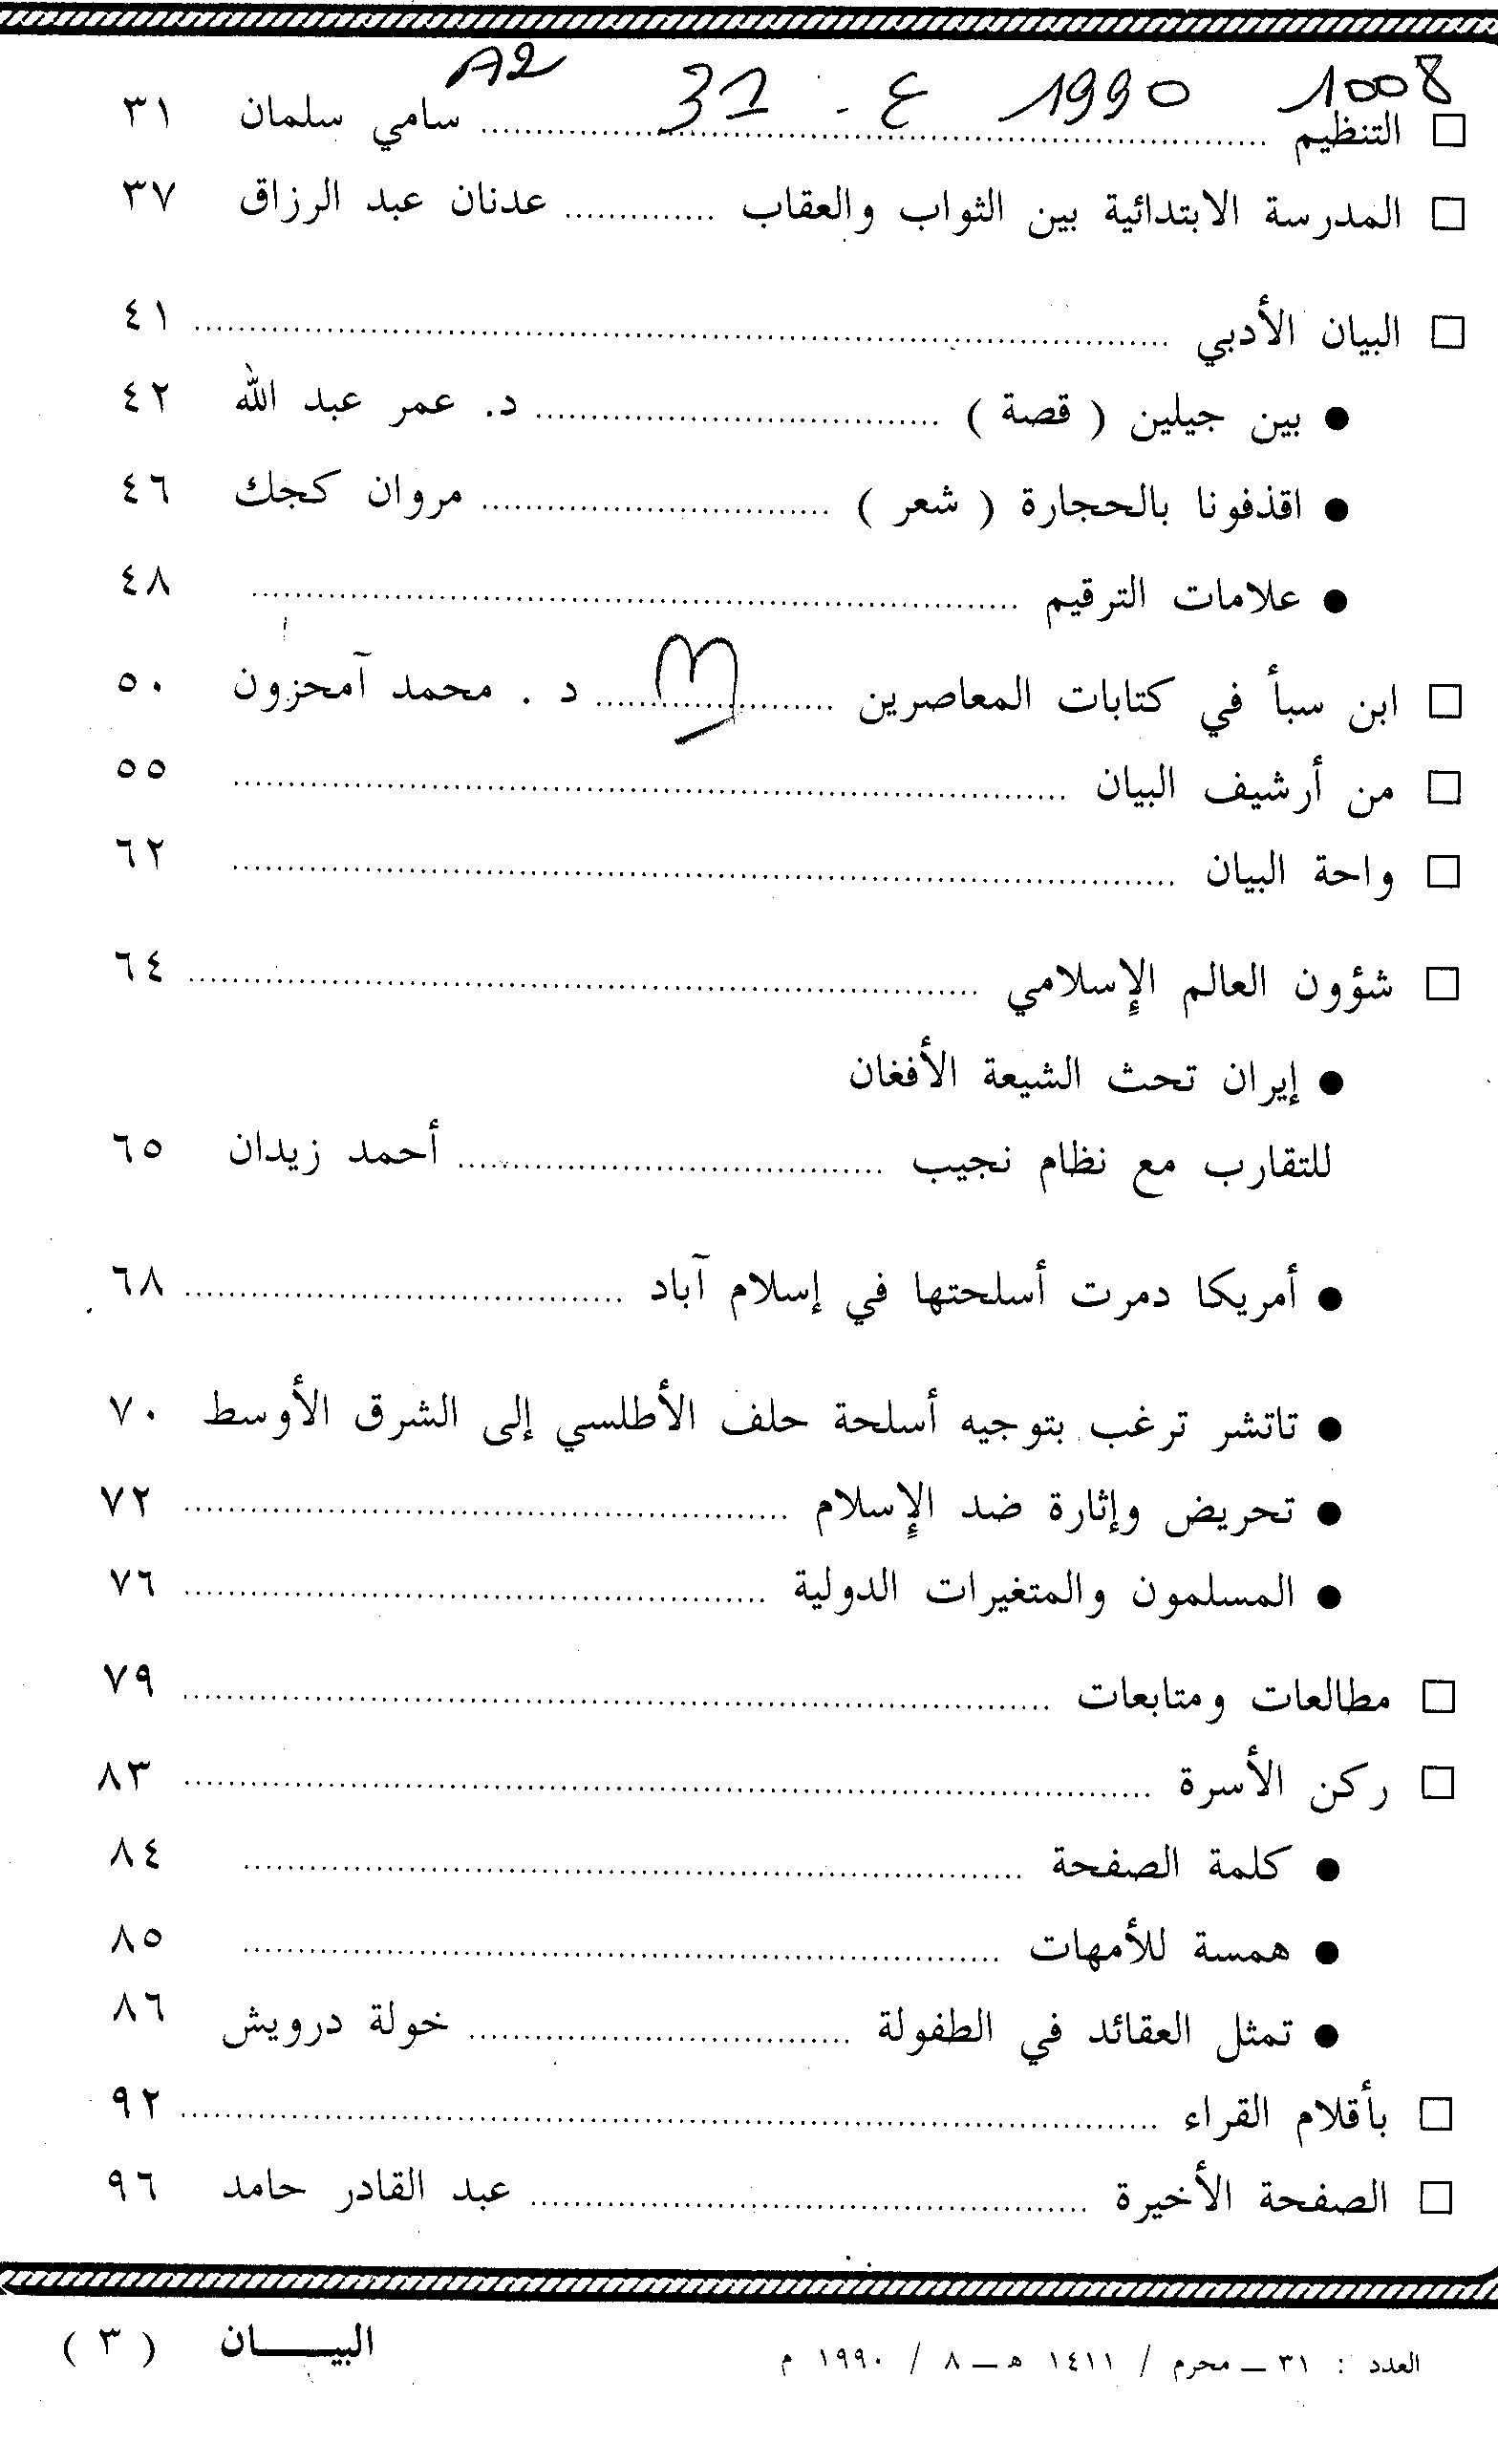 1008 1990 ع - 31 A2
□ التنظيم ........ سامي سلمان ٣١
□ المدرسة الابتدائية بين الثواب والعقاب ........ عدنان عبد الرزاق ٣٧
□ البيان الأدبي ........ ٤١
● بين جيلين ( قصة ) ........ د. عمر عبد الله ٤٢
● اقذفونا بالحجارة ( شعر ) ........ مروان كجك ٤٦
● علامات الترقيم ........ ٤٨
□ ابن سبأ في كتابات المعاصرين ........ د . محمد آمحزون ٥٠
□ من أرشيف البيان ........ ٥٥
□ واحة البيان ........ ٦٢
□ شؤون العالم الإسلامي ........ ٦٤
● إيران تحث الشيعة الأفغان
للتقارب مع نظام نجيب ........ أحمد زيدان ٦٥
● أمريكا دمرت أسلحتها في إسلام آباد ........ ٦٨
● تاتشر ترغب بتوجيه أسلحة حلف الأطلسي إلى الشرق الأوسط ٧٠
● تحريض وإثارة ضد الإسلام ........ ٧٢
● المسلمون والمتغيرات الدولية ........ ٧٦
□ مطالعات ومتابعات ........ ٧٩
□ ركن الأسرة ........ ٨٣
● كلمة الصفحة ........ ٨٤
● همسة للأمهات ........ ٨٥
● تمثل العقائد في الطفولة ........ خولة درويش ٨٦
□ بأقلام القراء ........ ٩٢
□ الصفحة الأخيرة ........ عبد القادر حامد ٩٦
العدد : ٣١ ــ محرم / ١٤١١ هـ ــ ٨ / ١٩٩٠ م
البيـــــان ( ٣ )